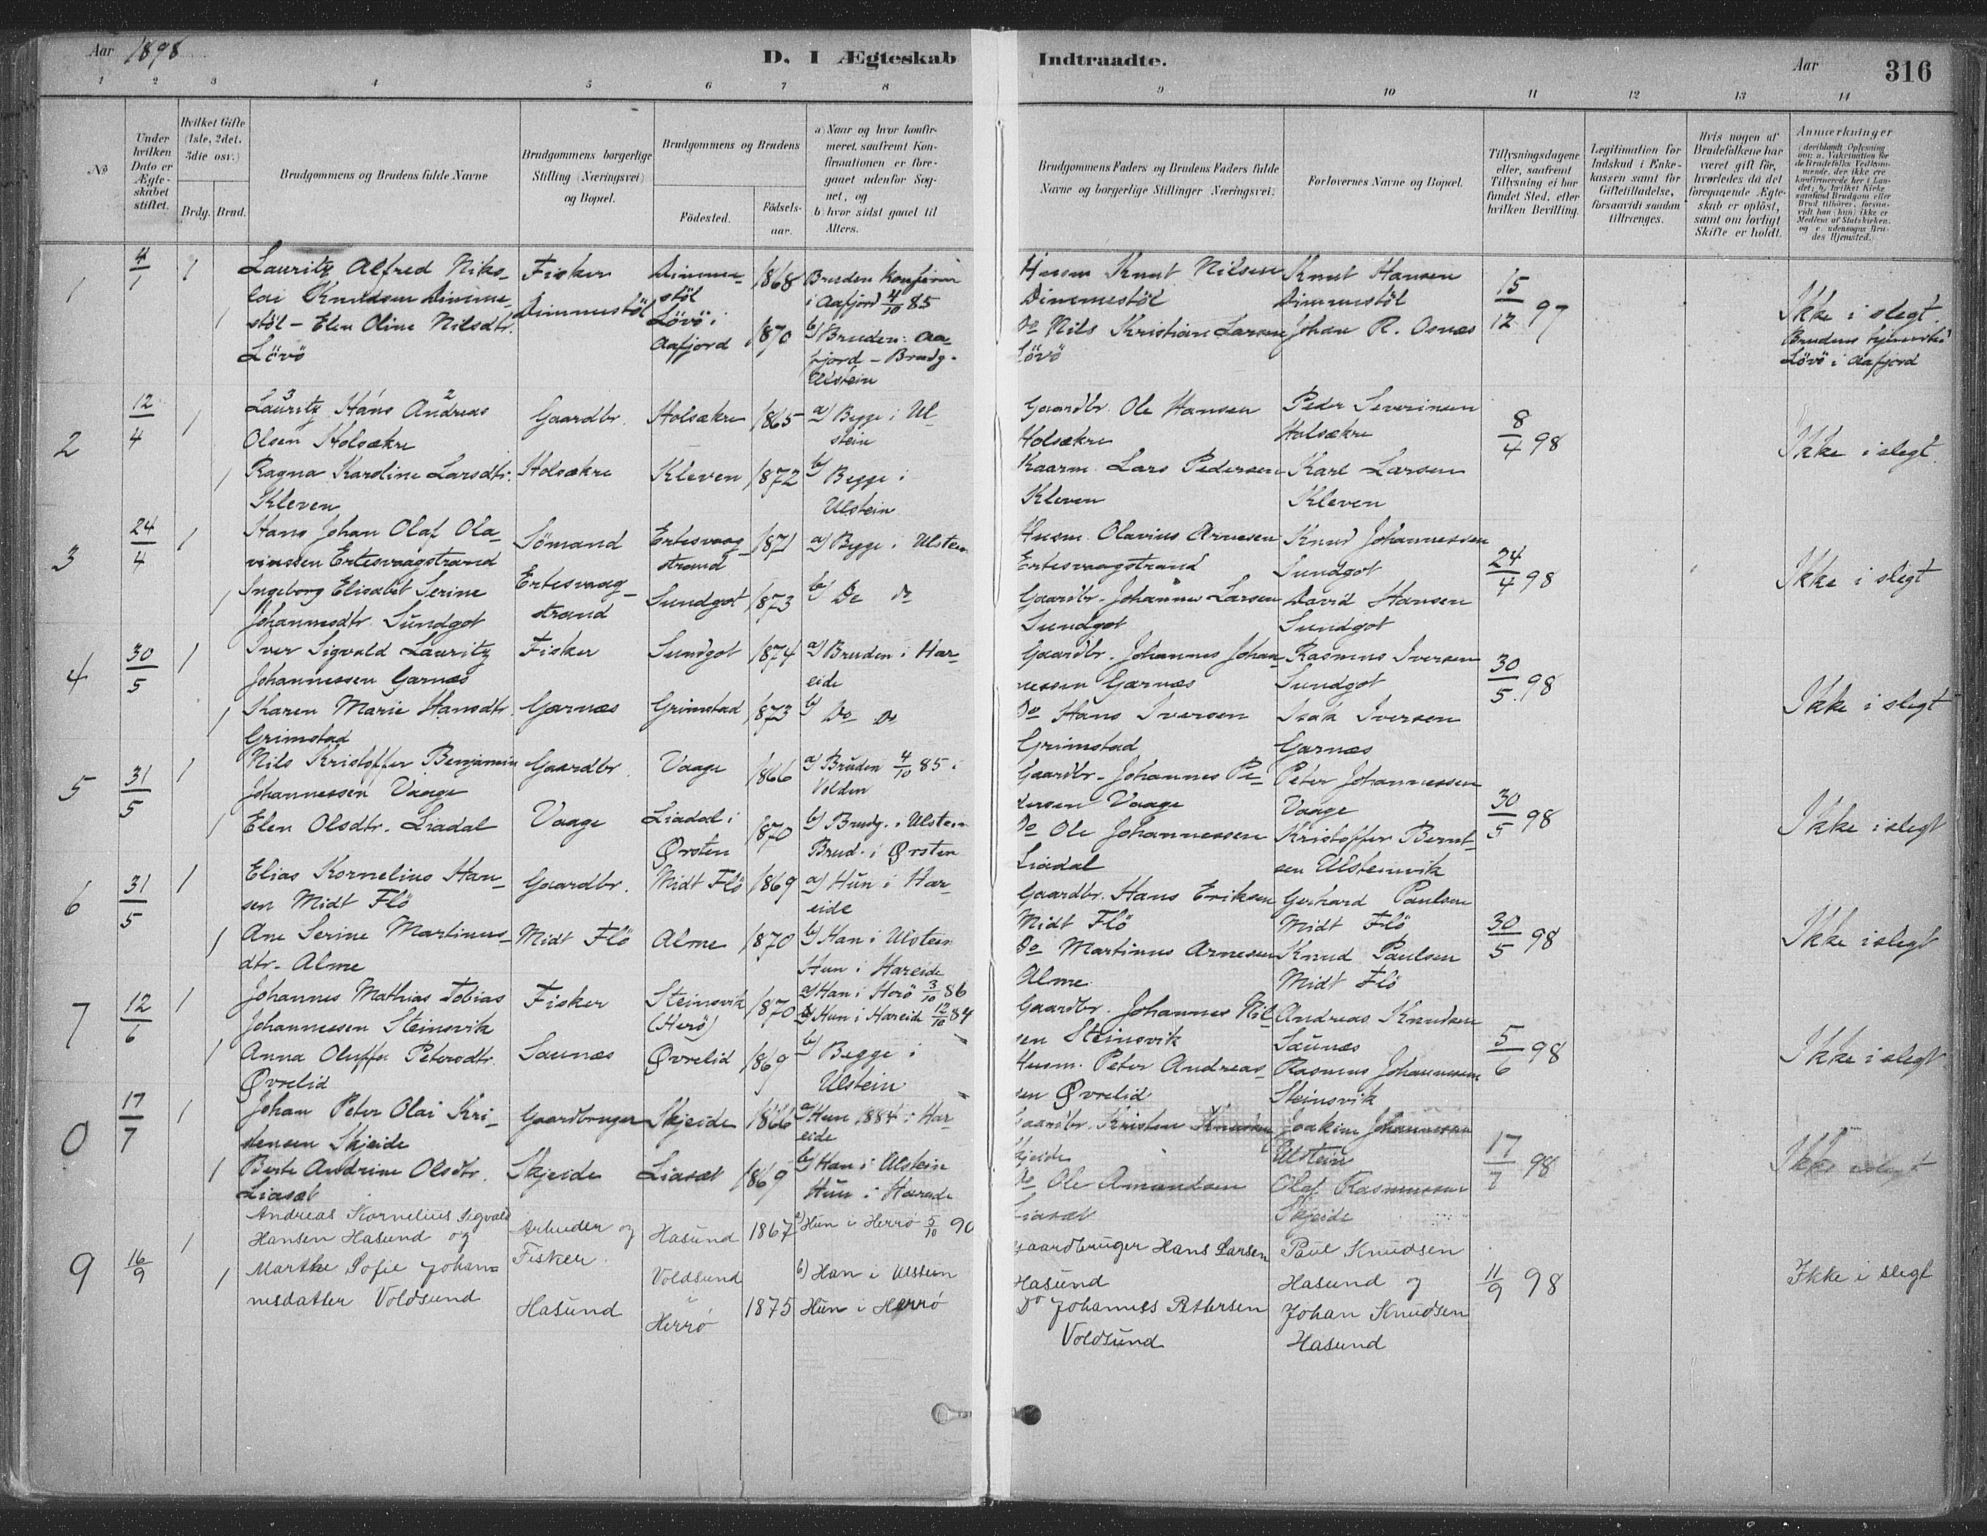 Aar 1898
D. I Ægteskab
Indtraadte.
Aar 316
1 2 3 4 5 6 7 8 9 10 11 12 13 14
No
Under hvilken Dato er Ægteskabet stiftet.
Hvilket Gifte (1ste, 2det, 3die osv.)
Brdg. Brud.
Brudgommens og Brudens fulde Navne
Brudgommens borgerlige Stilling (Næringsvei) og Bopæl.
Brudgommens og Brudens
Fødested.
Fødselsaar.
a) Naar og hvor konfirmeret, saafremt Konfirmationen er foregaaet udenfor Sognet, og
b) hvor sidst gaaet til Alters.
Brudgommens Faders og Brudens Faders fulde Navne og borgerlige Stillinger (Næringsvei).
Forlovernes Navne og Bopæl.
Tillysningsdagene eller, saafremt Tillysning ei har fundet Sted, efter hvilken Bevilling.
Legitimation for Indskud i Enkekassen samt for Giftetilladelse, forsaavidt saadan tiltrænges.
Hvis nogen af Brudefolkene har været gift før, hvorledes da det foregaaende Ægteskab er opløst, samt om lovligt Skifte er holdt.
Anmærkninger
1 4/1 1
Lauritz Alfred Nikolai Knudsen Dimmestöl - Elen Oline Nilsdtr. Lövö
1
Fisker
Dimmestöl
Dimmestöl 1868
Lövö i Aafjord 1870
Bruden konfirm i Aafjord 4/10 85
b) Bruden: Aafjord - Brudg. Ulstein
Husm Knut Nilsen Dimmestöl
Do Nils Kristian Larsen Lövö
Knut Hansen Dimmestöl
Johan R. Osnæs
15/12 97
Ikke i slegt.
Brudens Hjemsted Lövö i Aafjord
2 12/4 1
Lauritz Hans Andreas Olsen Holsækre
1 Ragna Karoline Larsdtr. Kleven
Gaardbr.
Holsækre
Holsækre 1865
Kleven 1872
a) Begge i Ulstein
b) Begge i Ulstein
Gaardbr. Ole Hansen Holsækre
Kaarm. Lars Pedersen Kleven
Peder Severinsen Holsækre
Karl Larsen Kleven
8/4 98
Ikke i slegt.
3 24/4 1
Hans Johan Olaf Olavinssen Ertesvaagstrand
1 Ingeborg Elisabet Serine Johannesdtr. Sundgot
Sömand
Ertesvaagstrand
Ertesvaagstrand 1871
Sundgot 1873
a) Begge i Ulstein
b) Do do
Husm. Olavius Arnesen Ertesvaagstrand
Gaardbr. Johannes Larsen Sundgot
Knud Johannessen Sundgot
David Hansen Sundgot
24/4 98
Ikke i slegt
4 30/5 1
Iver Sigvald Lauritz Johannessen Garnæs
1 Karen Marie Hansdtr. Grimstad
Fisker
Garnæs
Sundgot 1874
Grimstad 1873
a) Bruden i Hareide
b) Do do
Gaardbr. Johannes Johannessen Garnæs
Do Hans Iversen Grimstad
Rasmus Iversen Sundgot
Isak Iversen Garnæs
30/5 98
Ikke i slegt
5 31/5 1
Nils Kristoffer Benjamin Johannessen Vaage
1 Elen Olsdtr. Liadal
Gaardbr.
Vaage
Vaage 1866
Liadal i Ørsten 1870
a) Bruden 4/10 85 i Volden
b) Brudg. i Ulstein Brud. i Ørsten
Gaardbr. Johannes Pedersen Vaage
Do Ole Johannessen Liadal
Peter Johannessen Vaage
Kristoffer Berntsen Ulsteinvik
30/5 98
Ikke i slegt
6 31/5 1
Elias Kornelius Hansen Midt Flö
1 Ane Serine Martinusdtr. Alme
Gaardbr.
Midt Flö
Midt Flö 1869
Alme 1870
a) Hun i Hareide
b) Han i Ulstein Hun i Hareide
Gaardbr. Hans Eriksen Midt Flö
Do Martinus Arnesen Alme
Gerhard Paulsen Midt Flö
Knud Paulsen Midt Flö
30/5 98
Ikke i slegt
7 12/6 1
Johannes Mathias Tobias Johannessen Steinsvik
1 Anna Oluffa Petersdtr. Øvrelid
Fisker
Saunæs
Steinsvik (Herö) 1870
Øvrelid 1869
a) Han i Herö 3/10 86
Hun i Hareide 12/10 84
b) Begge i Ulstein
Gaardbr. Johannes Nilsen Steinsvik
Husm. Peter Andreassen Øvrelid
Andreas Knudsen Saunæs
Rasmus Johannessen Steinsvik
5/6 98
Ikke i slegt
0 17/7 1
Johan Peter Olai Kristensen Skjeide
1 Berte Andrine Olsdtr. Liasæt
Gaardbruger
Skjeide
Skjeide 1866
Liasæt 1869
a) Hun 1884 i Hareide
b) Han i Ulstein Hun i Hareide
Gaardbr. Kristen Knudsen Skjeide
Do Ole Amundsen Liasæt
Joakim Johannessen Ulstein
Olaf Rasmussen Skjeide
17/7 98
Ikke i slegt
9 16/9 1
Andreas Kornelius Sigvald Hansen Hasund og
1 Marthe Sofie Johannesdatter Voldsund
Arbeider og Fisker.
Hasund
Hasund 1867
Voldsund i Herrø 1875
a) Hun i Herrø 5/10 90
b) Han i Ulstein
Hun i Herrø
Gaardbruger Hans Larsen Hasund
Do Johannes Petersen Voldsund
Paul Knudsen Hasund og
Johan Knudsen Hasund
11/9 98
Ikke i slegt